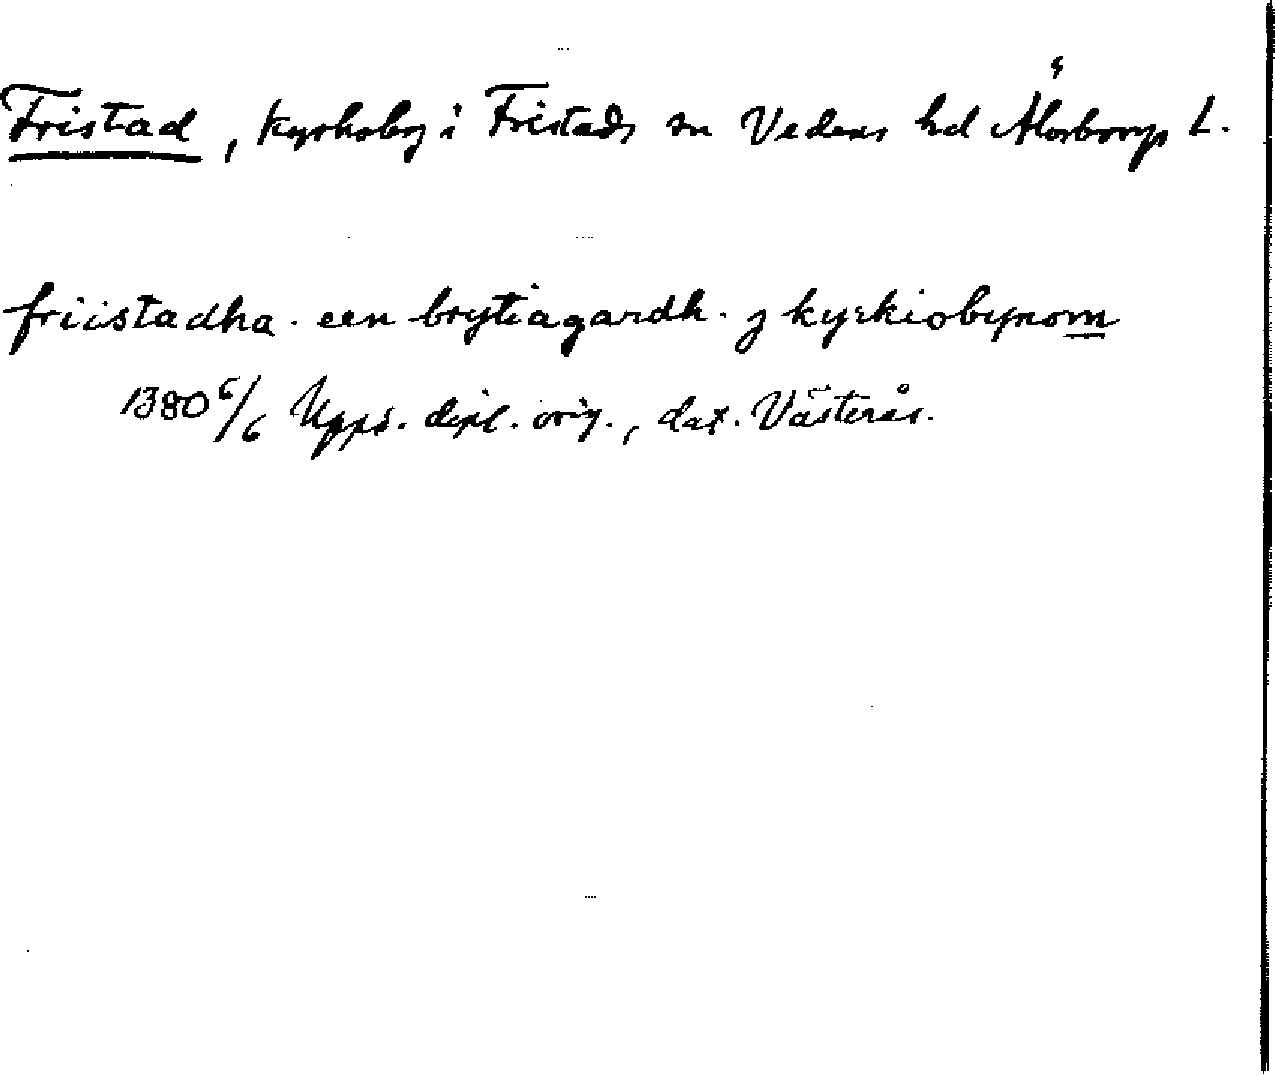 Fristad, kyrkoby i Fristads sn Vedens hd Älvsborgs L.
friistadha. een brytiagardh. j kyrkiobynom
1380 6/6 Upps. dipl. orig., dat. Västerås.